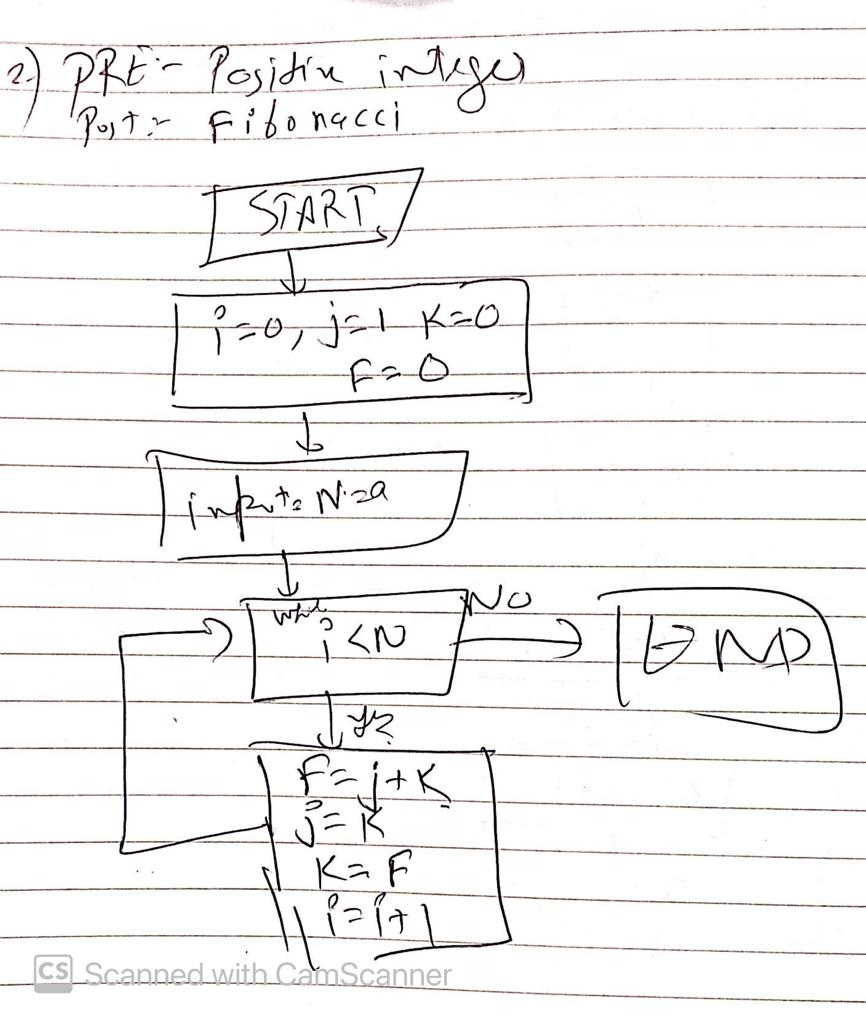 2) PRE:- Positive integer
Post:- Fibonacci
START
i=0, j=1 K=0
F=0
input= N=a
while
i<N
NO
END
F=j+K
j=K
K=F
i=i+1
CS Scanned with CamScanner